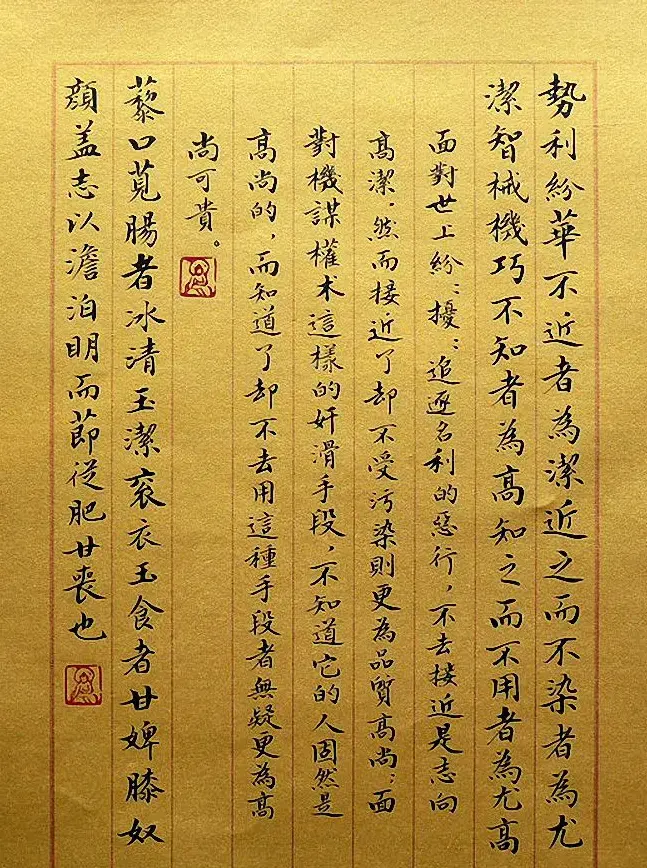 勢利紛華不近者為潔近之而不染者為尤
潔智械機巧不知者為高知之而不用者為尤高
面對世上紛:擾:追逐名利的惡行，不去接近是志向
高潔，然而接近了却不受污染則更為品質高尚；面
對機謀權术這樣的奸滑手段，不知道它的人固然是
高尚的，而知道了却不去用這種手段者無疑更為高
尚可貴。
藜口莧腸者冰清玉潔衮衣玉食者甘婢膝奴
顔盖志以澹泊明而節從肥甘喪也